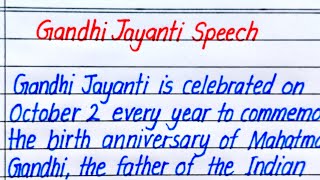 Gandhi Jayanti Speech
Gandhi Jayanti is celebrated on
October 2 every year to commemo
the birth anniversary of Mahatma
Gandhi, the father of the Indian